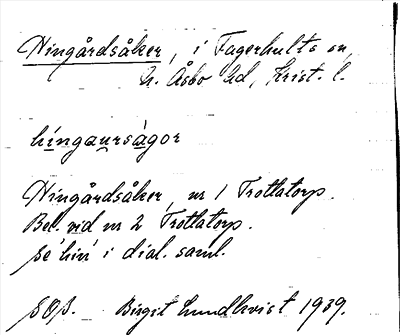 Hingårdsåker, i Fagerhults sn,
N. Åsbo hd, Krist. l.
híngaursàgor
Hingårdsåker, nr 1 Trottatorp.
Bel. vid nr 2 Trottatorp.
se 'hin' i dial. saml.
SOS. Birgit Lundkvist 1939.